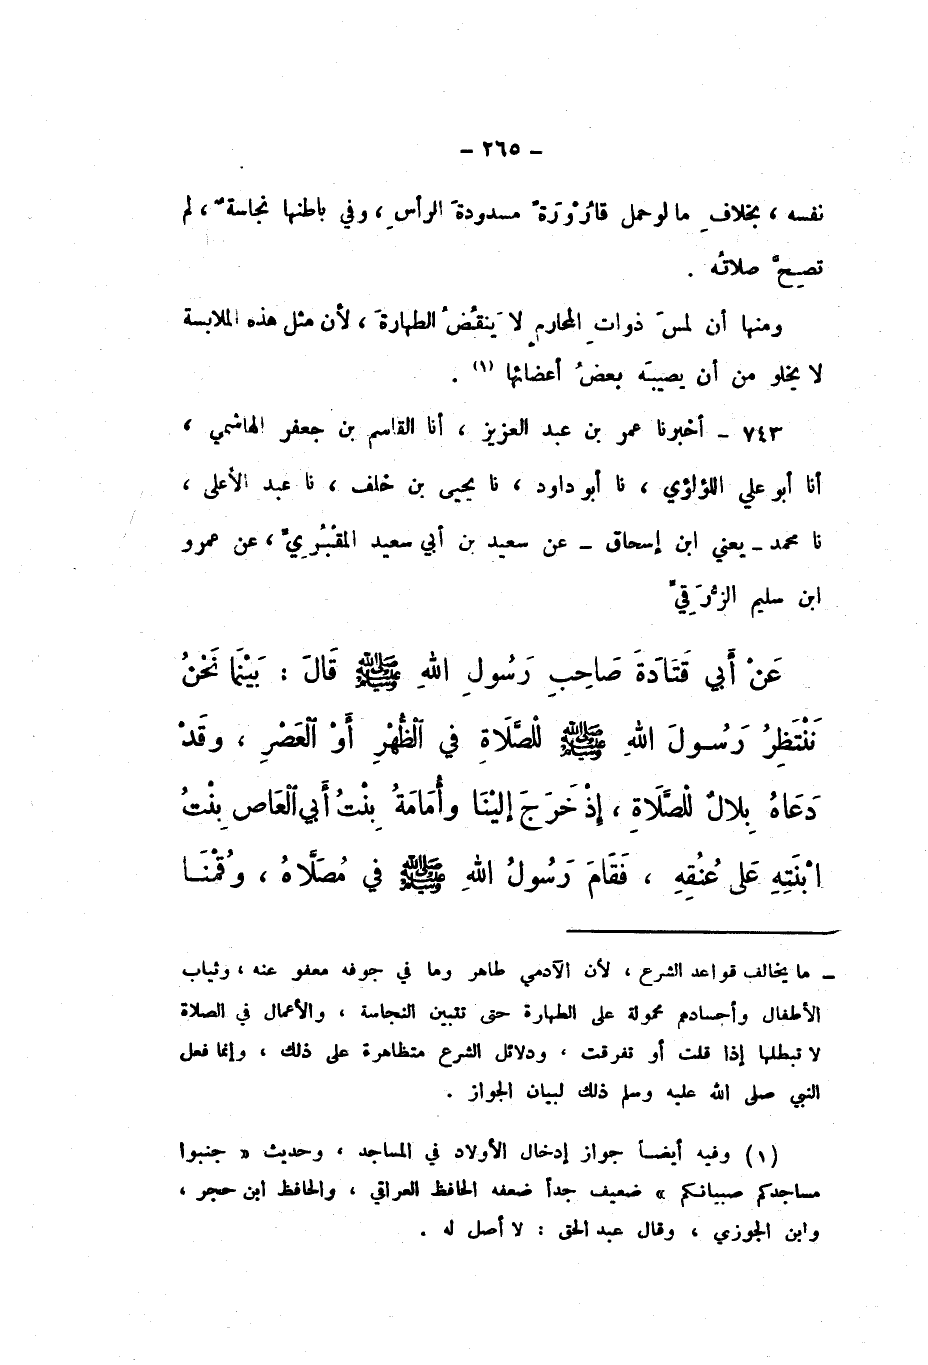 ـ ٢٦٥ ـ
نفسه ، بخلافِ ما لو حمل قارُوْرَةً مسدودةَ الرأسِ ، وفي باطنها نجاسةٌ ، لم
تصحَّ صلاتُه .
ومنها أن لمسَ ذواتِ المحارمِ لا يَنقُضُ الطهارةَ ، لأن مثل هذه الملابسة
لا يخلو من أن يصيبَه بعضُ أعضائها (١) .
٧٤٣ ـ أخبرنا عمر بن عبد العزيز ، أنا القاسم بن جعفر الهاشمي ،
أنا أبو علي اللؤلؤي ، نا أبو داود ، نا يحيى بن خلف ، نا عبد الأعلى ،
نا محمد ـ يعني ابن إسحاق ـ عن سعيد بن أبي سعيد المقْبُرِيِّ ، عن عمرو
ابن سليم الزُّرَقِيِّ
عَنْ أَبي قَتَادَةَ صَاحِبِ رَسُولِ اللهِ ﷺ قَالَ : بَيْنَما نَحْنُ
نَنْتَظِرُ رَسُـولَ اللهِ ﷺ لْلصَّلَاةِ في ٱلظُّهْرِ أَوْ ٱلعَصْرِ ، وقَدْ
دَعَاهُ بِلالٌ لْلصَّلَاةِ ، إِذْ خَرَجَ إليْنَا وأُمَامَةُ بِنْتُ أَبي ٱلعَاصِ بِنْتُ
ابْنَتِهِ عَلى عُنُقِهِ ، فَقَامَ رَسُولُ اللهِ ﷺ في مُصَلَّاهُ ، وقُمْنَـا
ـ ما يخالف قواعد الشرع ، لأن الآدمي طاهر وما في جوفه معفو عنه ، وثياب
الأطفال وأجسادم محمولة على الطهارة حتى تتبين النجاسة ، والأعمال في الصلاة
لا تبطلها إذا قلت أو تفرقت ، ودلائل الشرع متظاهرة على ذلك ، وإنما فعل
النبي صلى الله عليه وسلم ذلك لبيان الجواز .
(١) وفيه أيضـاً جواز إدخال الأولاد في المساجد ، وحديث « جنبوا
مساجدكم صبيانكم » ضعيف جداً ضعفه الحافظ العراقي ، والحافظ ابن حجر ،
وابن الجوزي ، وقال عبد الحق : لا أصل له .